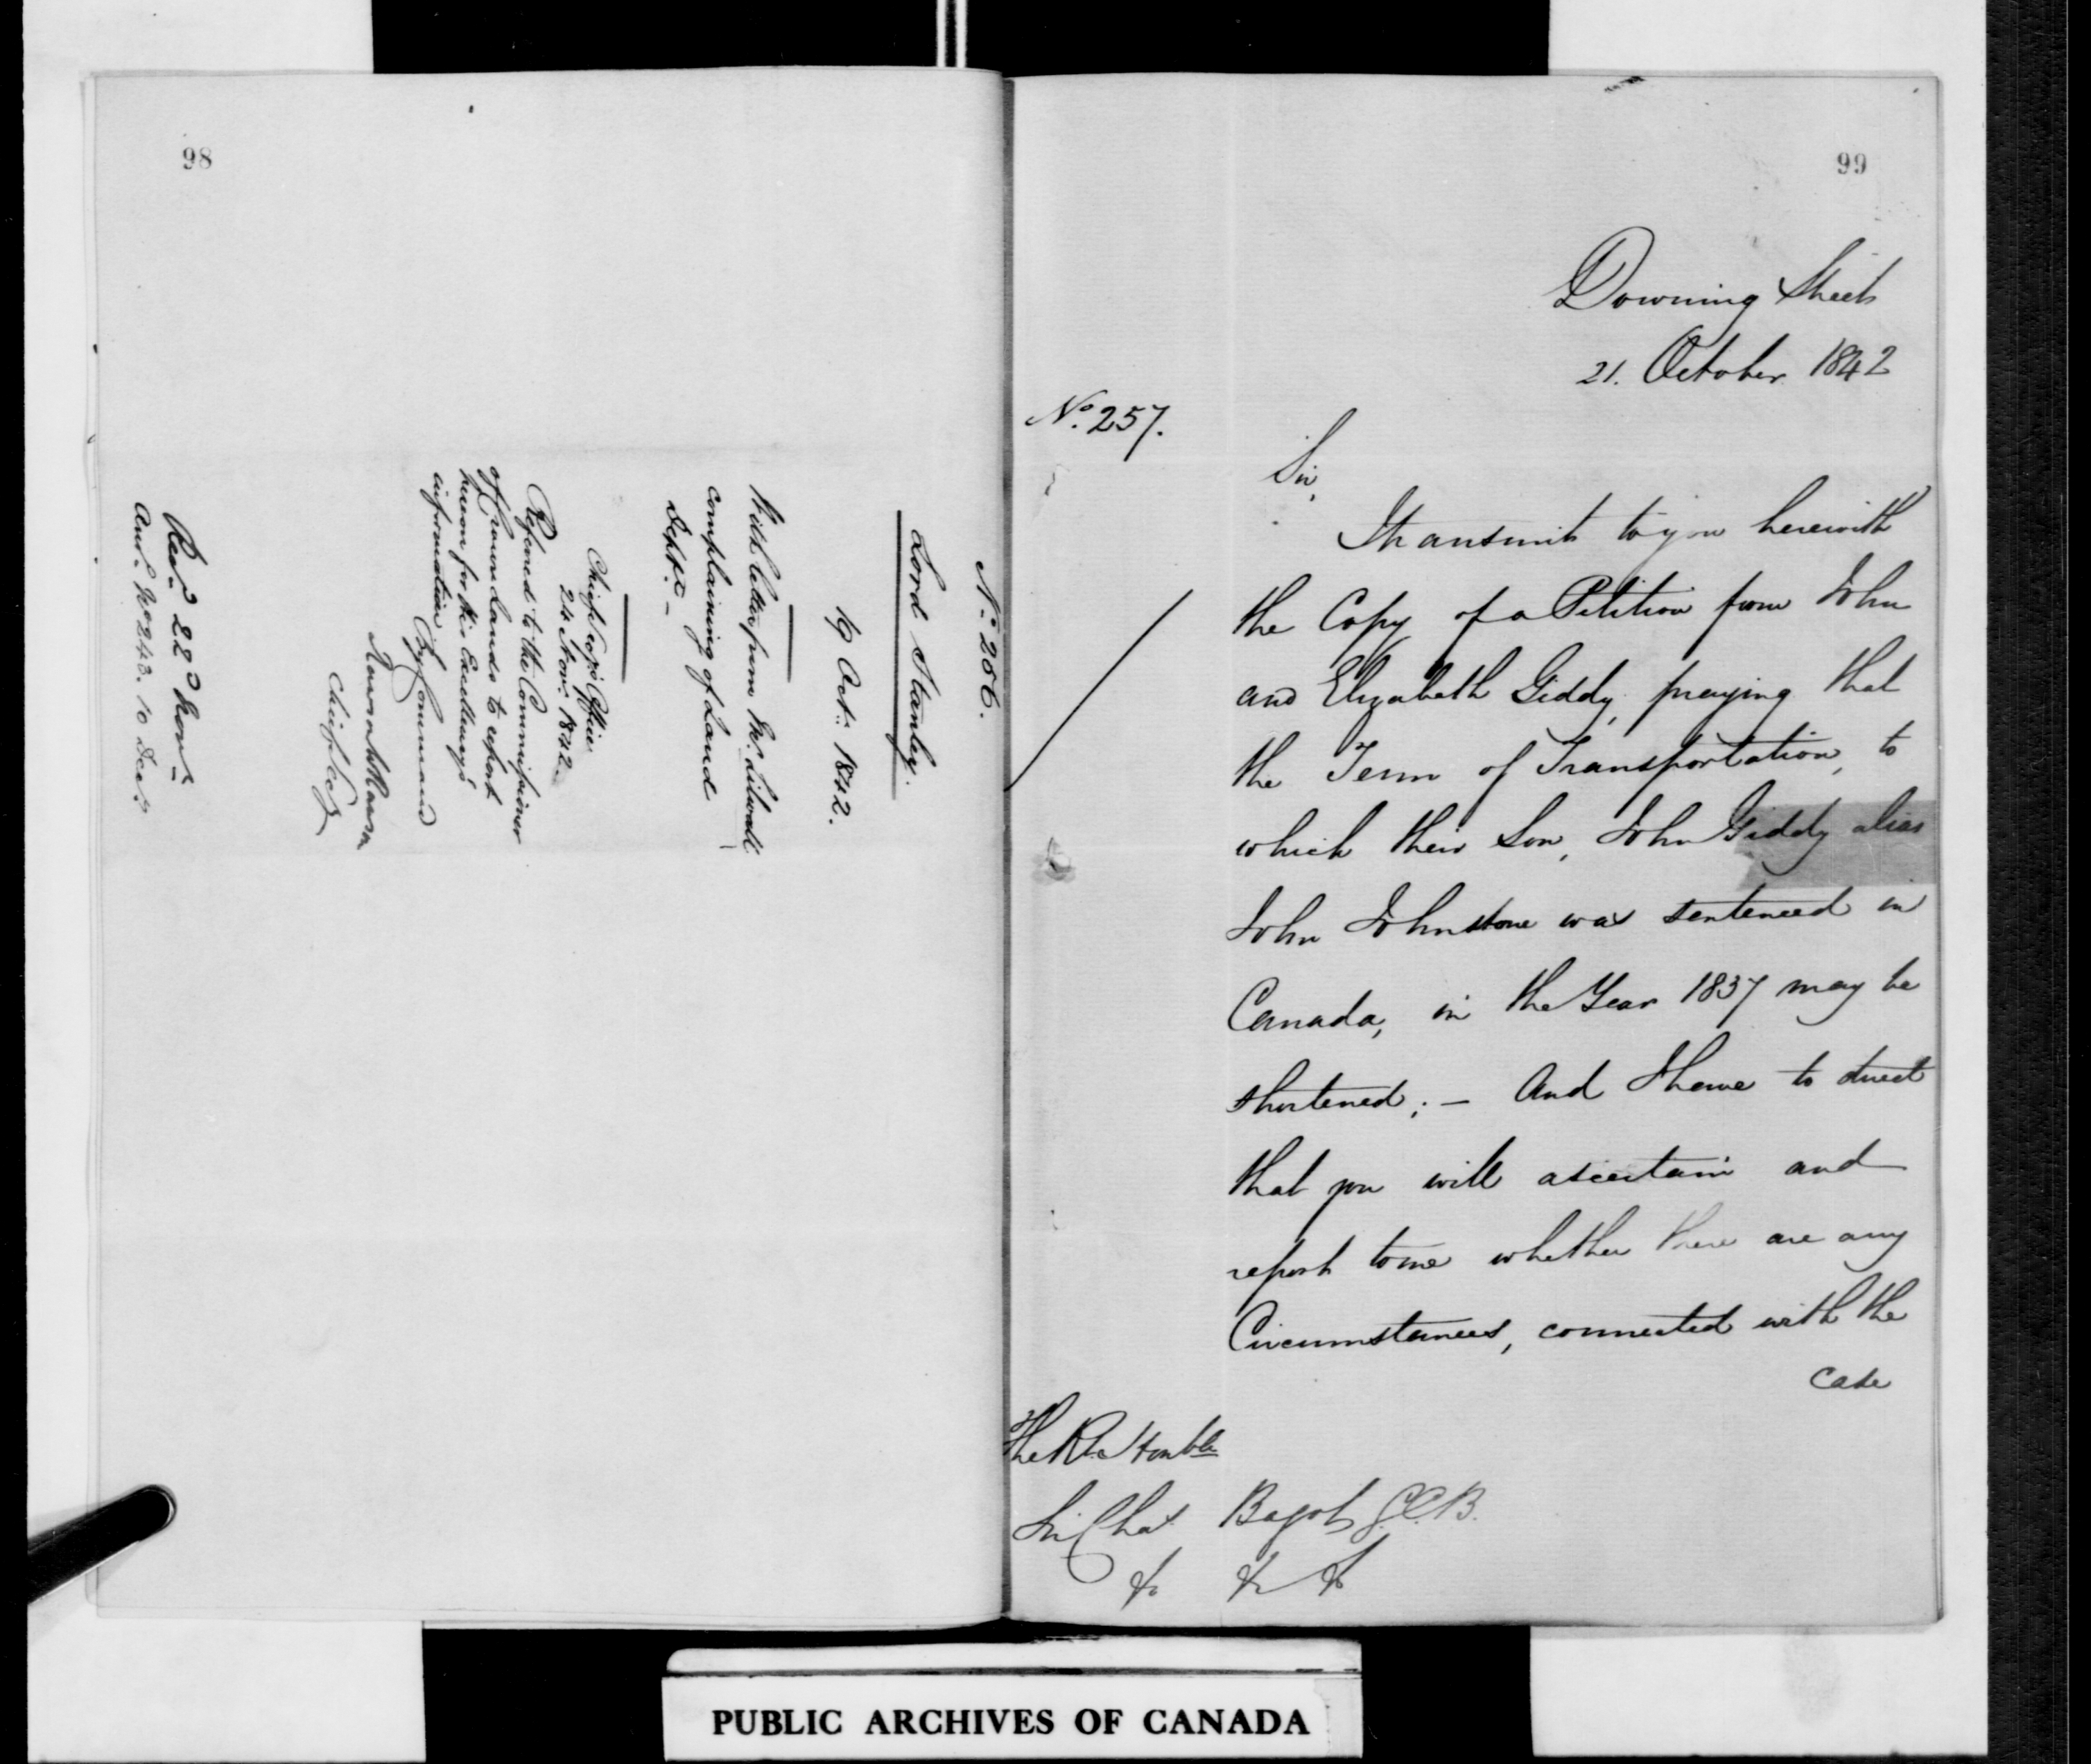 98
No. 256.
Lord Stanley.
19 Oct: 1842.
With letter from Mr.
complaining of Land
Dept. –
Chief Secy's Office
24 Novr. 1842.
Referred to the Commissioner
of Crown Lands to report
hereon for His Excellency's
information
By Command
Rawson W Rawson
Chief Secy
Recd 22d Novr.
Ansd. No 243. 10 Decr.
99
Downing Street
21. October 1842
No. 257.
Sir,
I transmit to you herewith
the Copy of a Petition from John
and Elizabeth Giddy, praying that
the Term of Transportation, to
which their Son, John Giddy alias
John Johnstone was sentenced in
Canada, in the Year 1837 may be
shortened; – And I have to direct
that you will ascertain and
report to me whether there are any
Circumstances, connected with the
case
The Rt. Honble
Sir Chas. Bagot G.C.B.
&c &c &c
PUBLIC ARCHIVES OF CANADA